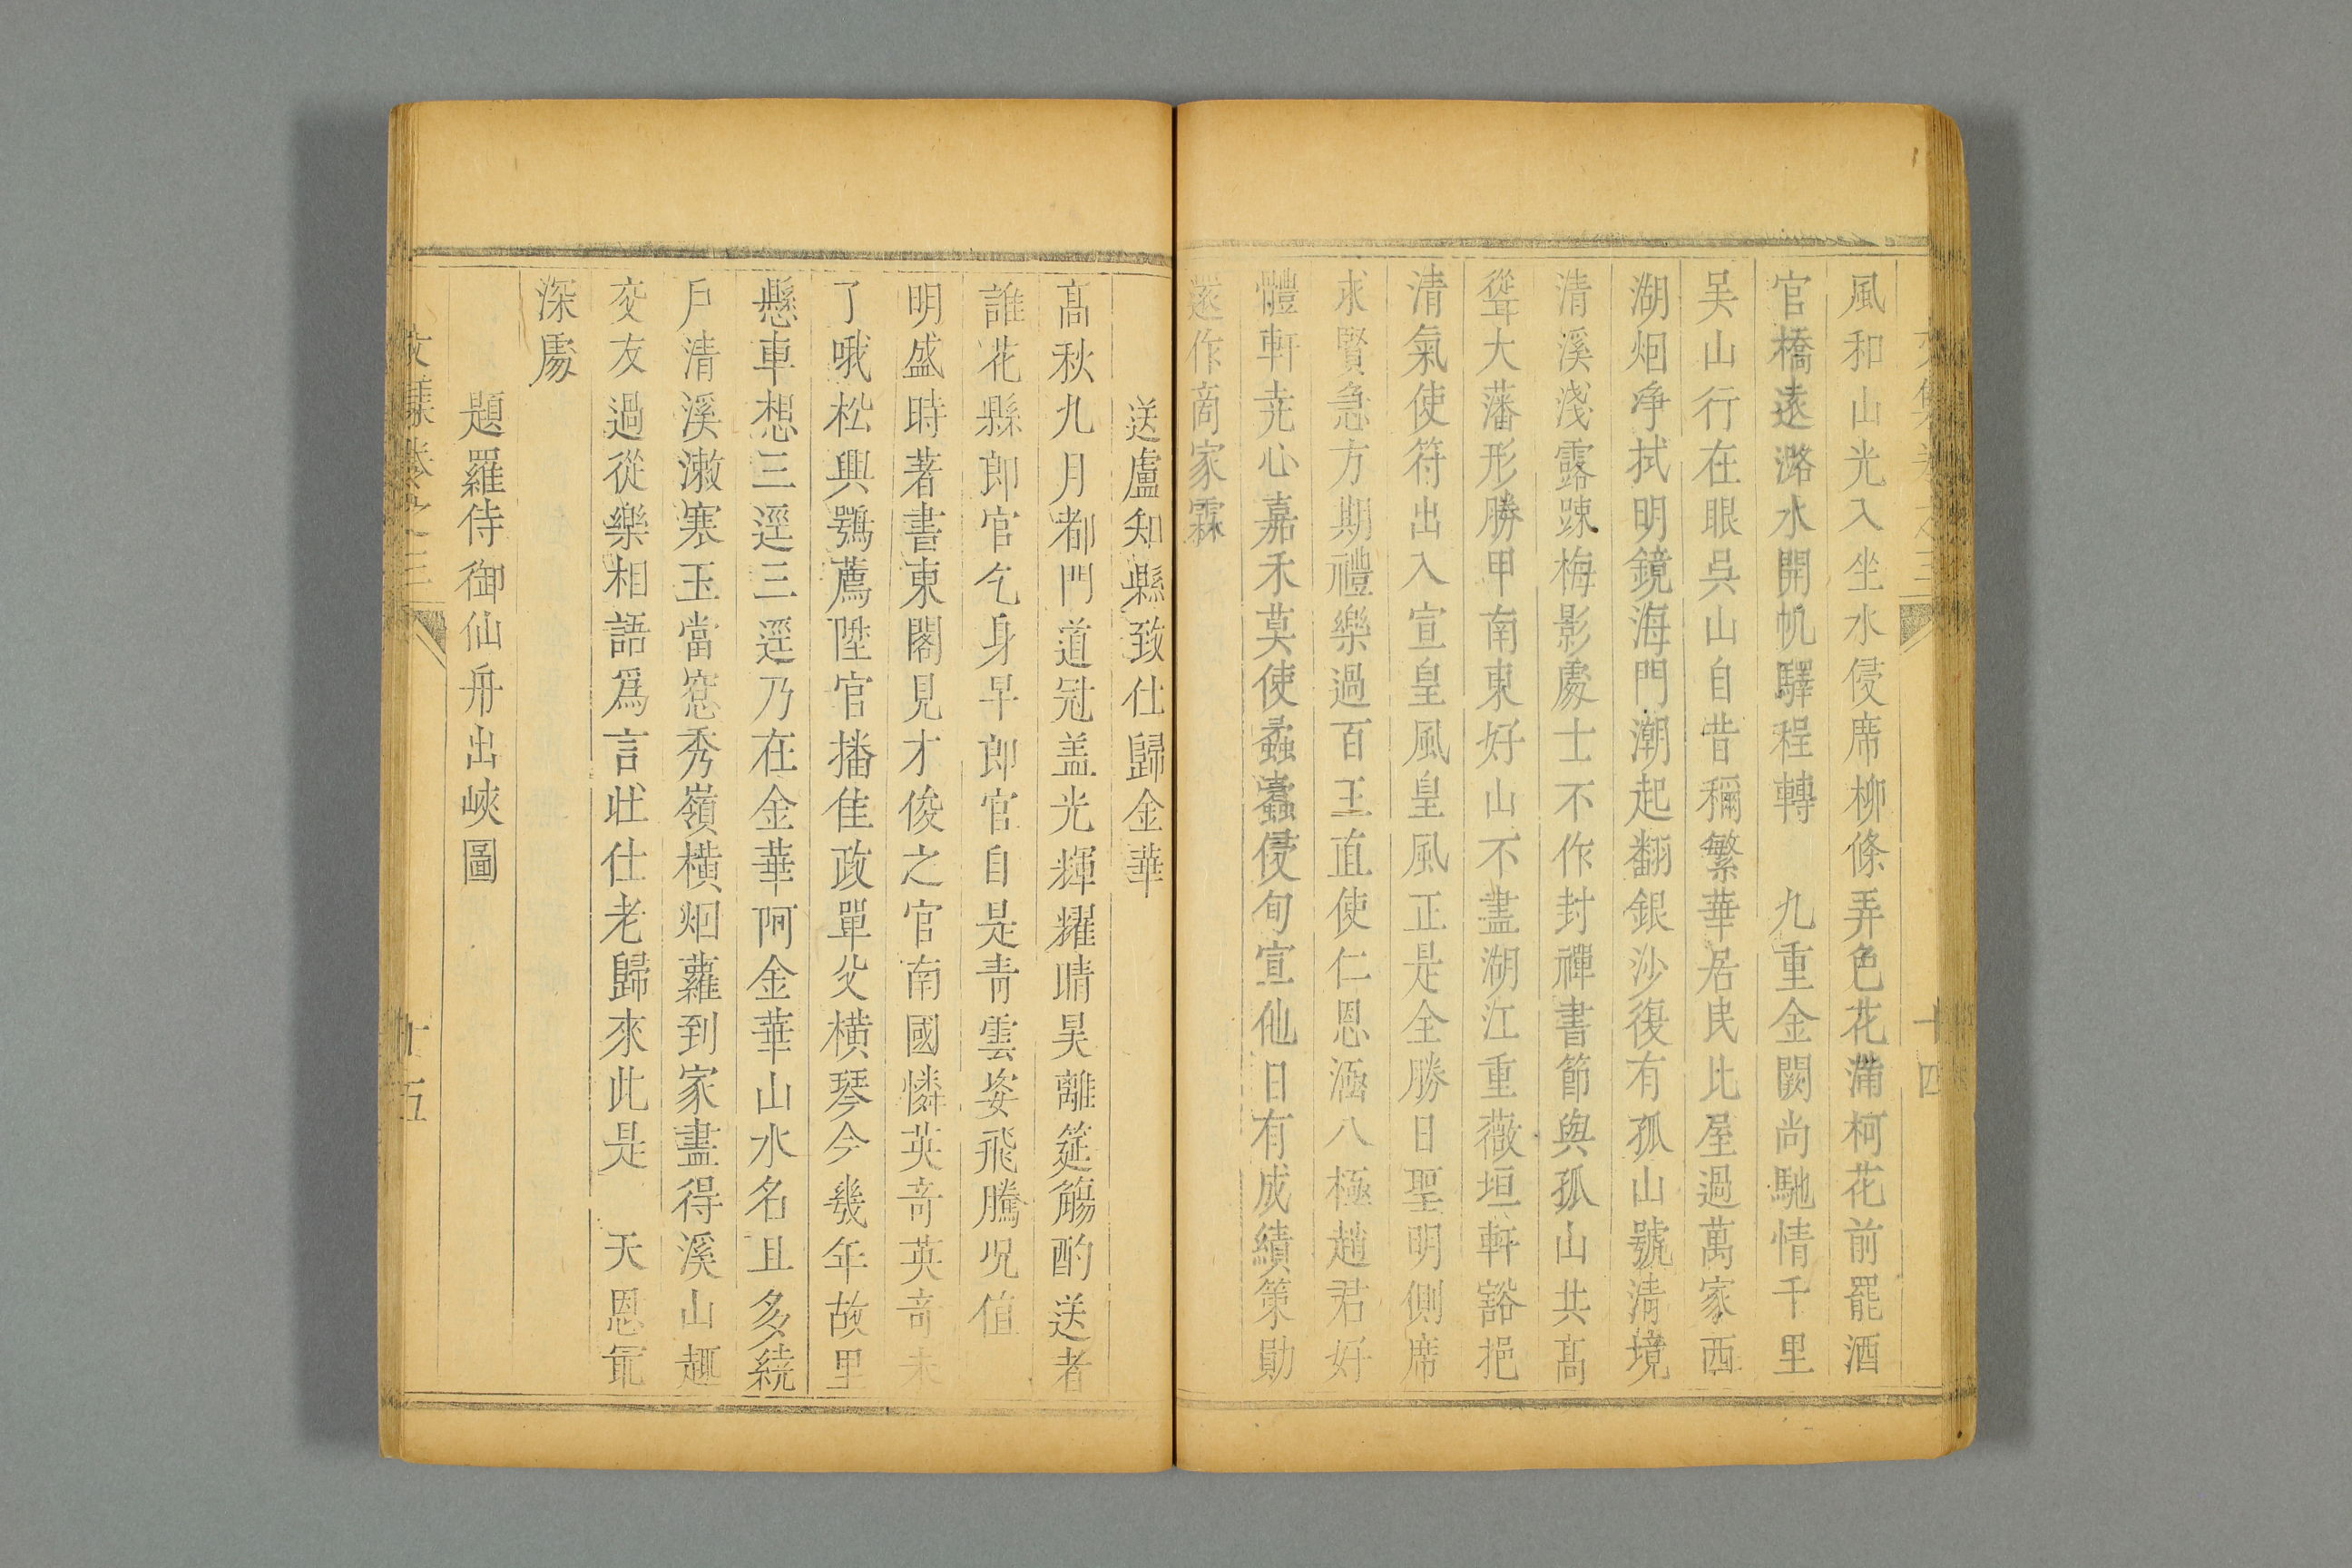 風和山光入坐水侵席柳條弄色花滿柯花前罷酒
官橋遠潞水開帆驛程轉　九重金闕尚馳情千里
吴山行在眼吳山自昔稱繁華居民比屋過萬家西
湖烟净拭明鏡海門潮起翻銀沙復有孤山號清境
清溪淺露踈梅影處士不作封禪書節與孤山共高
聳大藩形勝甲南東好山不盡湖江重薇垣軒豁挹
清氣使符出入宣皇風皇風正是全勝日聖明側席
求賢急方期禮樂過百王直使仁恩涵八極趙君好
體軒尭心嘉禾莫使蟊蠧侵旬宣他日有成績策勛
遂作商家霖
十四
送盧知縣致仕歸金華
高秋九月都門道冠盖光輝耀晴昊離筵觴酌送者
誰花縣郎官乞身早郎官自是青雲姿飛騰况值
明盛時著書東閣見才俊之官南國憐英奇英奇未
了哦松興鶚薦陞官播佳政單父横琴今幾年故里
懸車想三逕三逕乃在金華阿金華山水名且多繞
戶清溪漱寒玉當窓秀嶺横烟蘿到家盡得溪山趣
交友過從樂相語爲言壯仕老歸來此是　天恩㝡
深處
題羅侍御仙舟出峽圖
十五